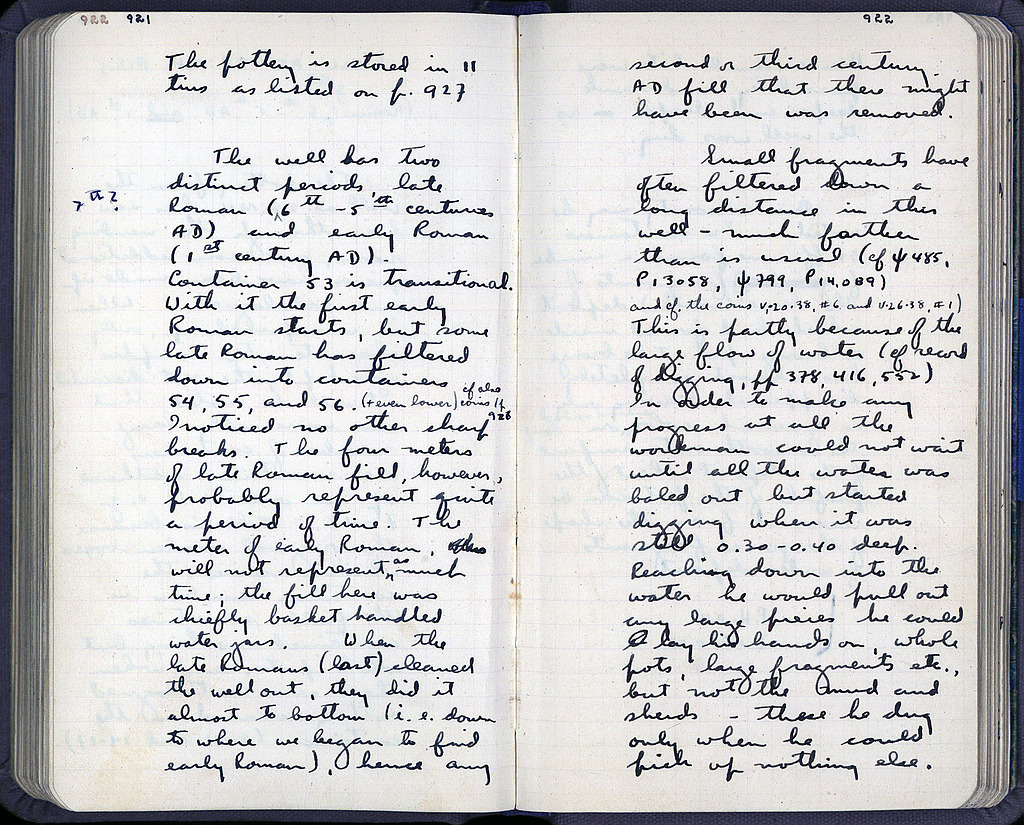 922 921
The pottery is stored in 11
tins as listed on p. 927
The well has two
distinct periods, late
7th?
Roman (6th - 5th centuries
AD) and early Roman
(1st century AD).
Container 53 is transitional.
With it the first early
Roman starts, but some
late Roman has filtered
down into containers
54, 55, and 56. (+ even lower) cf also coins p. 928
I noticed no other sharp
breaks. The four meters
of late Roman fill, however,
probably represent quite
a period of time. The
meter of early Roman,
will not represent as much
time; the fill here was
chiefly basket handled
water jars. When the
late Romans (last) cleaned
the well out, they did it
almost to bottom (i.e. down
to where we began to find
early Roman), hence any
922
second or third century
AD fill that there might
have been was removed.
Small fragments have
often filtered down a
long distance in this
well - much farther
than is usual (cf ψ 485,
P 13058, ψ 799, P 14,089)
and cf. the coins V.20.38, #6 and V.26.38, #1)
This is partly because of the
large flow of water (cf record
of digging, pp 378, 416, 552)
In order to make any
progress at all the
workman could not wait
until all the water was
bailed out but started
digging when it was
still 0.30 - 0.40 deep.
Reaching down into the
water he would pull out
any large pieces he could
lay his hands on, whole
pots, large fragments etc.,
but not the mud and
sherds - these he dug
only when he could
pick up nothing else.